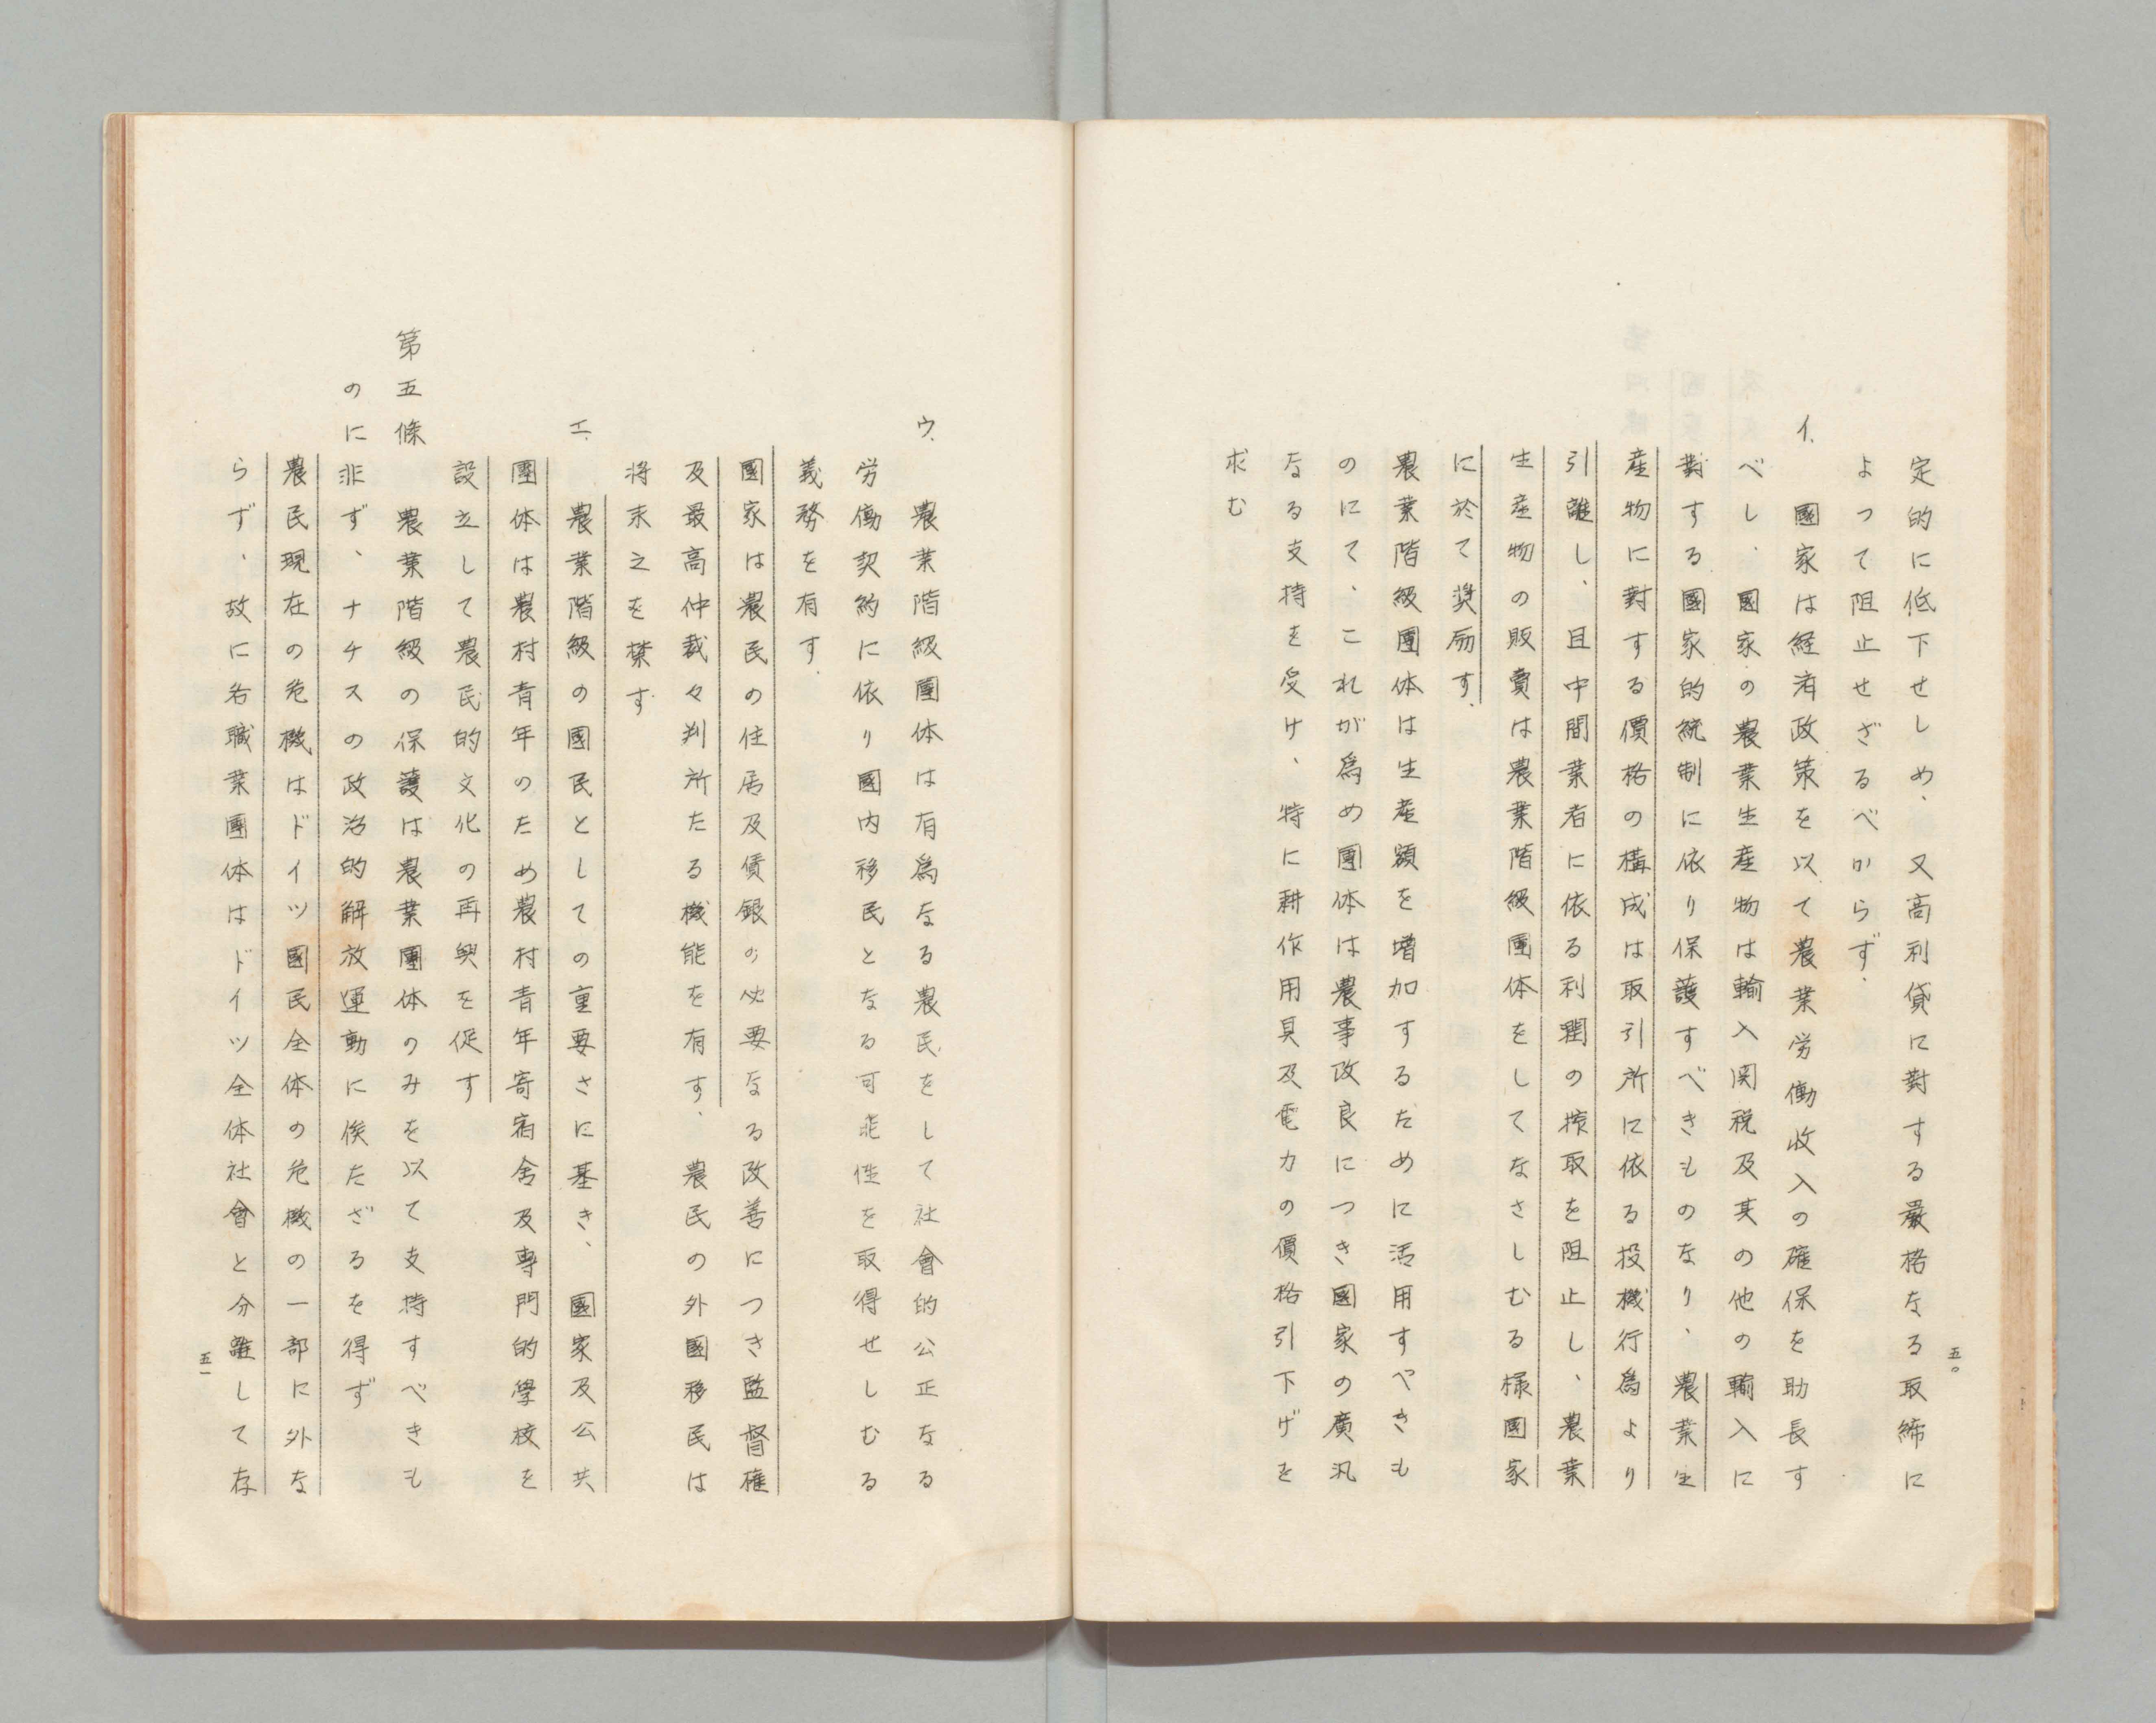 定的に低下せしめ、又高利貸に對する嚴格なる取締に
よって阻止せざるべからず、
イ、國家は経済政策を以て農業労働收入の確保を助長す
べし、國家の農業生産物は輸入関税及其の他の輸入に
對する國家的統制に依り保護すべきものなり、農業生
産物に對する價格の構成は取引所に依る投機行為より
引離し、且中間業者に依る利潤の搾取を阻止し、農業
生産物の販賣は農業階級團体をしてなさしむる様國家
に於て奨励す、
農業階級團体は生産額を増加するために活用すべきも
のにて、これが為め團体は農事改良につき國家の廣汎
なる支持を受け、特に耕作用具及電力の價格引下げを
求む
五〇
ウ、農業階級團体は有為なる農民をして社會的公正なる
労働契約に依り國内移民となる可能性を取得せしむる
義務を有す、
國家は農民の住居及賃銀の必要なる改善につき監督権
及最高仲裁々判所たる機能を有す、農民の外國移民は
将来之を禁ず
エ、農業階級の國民としての重要さに基き、國家及公共
團体は農村青年のため農村青年寄宿舍及専門的學校を
設立して農民的文化の再興を促す
第五條 農業階級の保護は農業團体のみを以て支持すべきも
のに非ず、ナチスの政治的解放運動に俟たざるを得ず
農民現在の危機はドイツ國民全体の危機の一部に外な
らず、故に各職業團体はドイツ全体社會と分離して存
五一